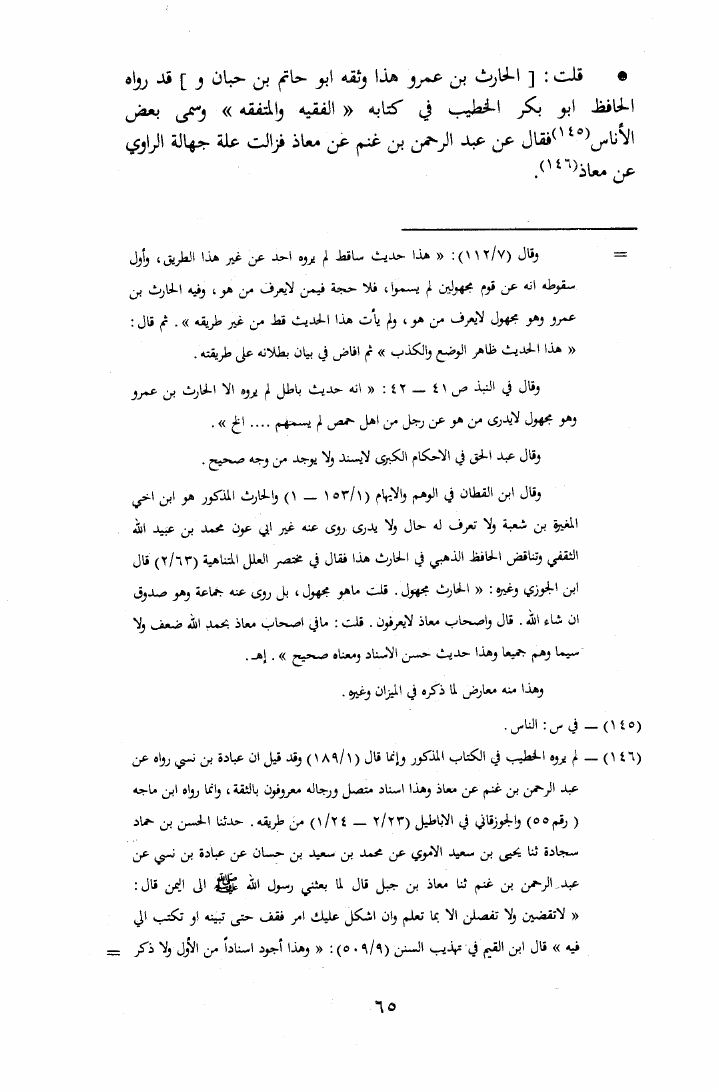 ● قلت : [ الحارث بن عمرو هذا وثقه ابو حاتم بن حبان و ] قد رواه
الحافظ ابو بكر الخطيب في كتابه « الفقيه والمتفقه » وسمى بعض
الأناس(١٤٥)فقال عن عبد الرحمن بن غنم عن معاذ فزالت علة جهالة الراوي
عن معاذ(١٤٦).
= وقال (١١٢/٧): « هذا حديث ساقط لم يروه احد عن غير هذا الطريق، وأول
سقوطه انه عن قوم مجهولين لم يسموا، فلا حجة فيمن لايعرف من هو، وفيه الحارث بن
عمرو وهو مجهول لايعرف من هو، ولم يأت هذا الحديث قط من غير طريقه ». ثم قال:
« هذا الحديث ظاهر الوضع والكذب » ثم افاض في بيان بطلانه على طريقته.
وقال في النبذ ص ٤١ ــ ٤٢: « انه حديث باطل لم يروه الا الحارث بن عمرو
وهو مجهول لايدرى من هو عن رجل من اهل حمص لم يسمهم .... الخ ».
وقال عبد الحق في الاحكام الكبرى لايسند ولا يوجد من وجه صحيح.
وقال ابن القطان في الوهم والايهام (١٥٣/١ ــ ١) والحارث المذكور هو ابن اخي
المغيرة بن شعبة ولا تعرف له حال ولا يدرى روى عنه غير ابي عون محمد بن عبيد الله
الثقفي وتناقض الحافظ الذهبي في الحارث هذا فقال في مختصر العلل المتناهية (٢/٦٣) قال
ابن الجوزي وغيره: « الحارث مجهول. قلت ماهو مجهول، بل روى عنه جماعة وهو صدوق
ان شاء الله. قال واصحاب معاذ لايعرفون. قلت: مافي اصحاب معاذ بحمد الله ضعف ولا
سيما وهم جميعا وهذا حديث حسن الاسناد ومعناه صحيح ». إهـ.
وهذا منه معارض لما ذكره في الميزان وغيره.
(١٤٥) ــ في س: الناس.
(١٤٦) ــ لم يروه الخطيب في الكتاب المذكور وإنما قال (١٨٩/١) وقد قيل ان عبادة بن نسي رواه عن
عبد الرحمن بن غنم عن معاذ وهذا اسناد متصل ورجاله معروفون بالثقة، وانما رواه ابن ماجه
( رقم ٥٥) والجوزقاني في الاباطيل (٢/٢٣ ــ ١/٢٤) من طريقه. حدثنا الحسن بن حماد
سجادة ثنا يحيى بن سعيد الاموي عن محمد بن سعيد بن حسان عن عبادة بن نسي عن
عبد الرحمن بن غنم ثنا معاذ بن جبل قال لما بعثني رسول الله ﷺ الى اليمن قال:
« لاتقضين ولا تفصلن الا بما تعلم وان اشكل عليك امر فقف حتى تبينه او تكتب الي
فيه » قال ابن القيم في تهذيب السنن (٥٠٩/٩): « وهذا أجود اسناداً من الأول ولا ذكر =
٦٥